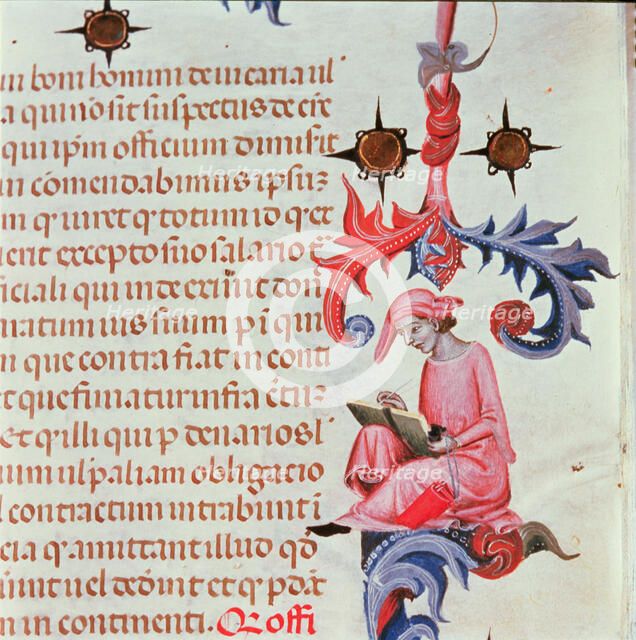 ui boni homini de uicaria uł
a qui nō sit suspectus de crē
qui ip̄m officium dimisit
in cōmendabimus ipsuz
m q uiuet q totum id q ex
uent excepto suo salario
ficiali qui inde exiunt don
matum ius suum p i qui
in que contra fiat in conti
et que fimatur infra
et q illi qui p denarios
uum uł paliam obligacio
l contractum intrabunt i
cia q amittant illud qđ
uel đ et q
n in continenti. Q offi
Heritage
Heritage
Heritage
Heritage
Heritage
Heritage